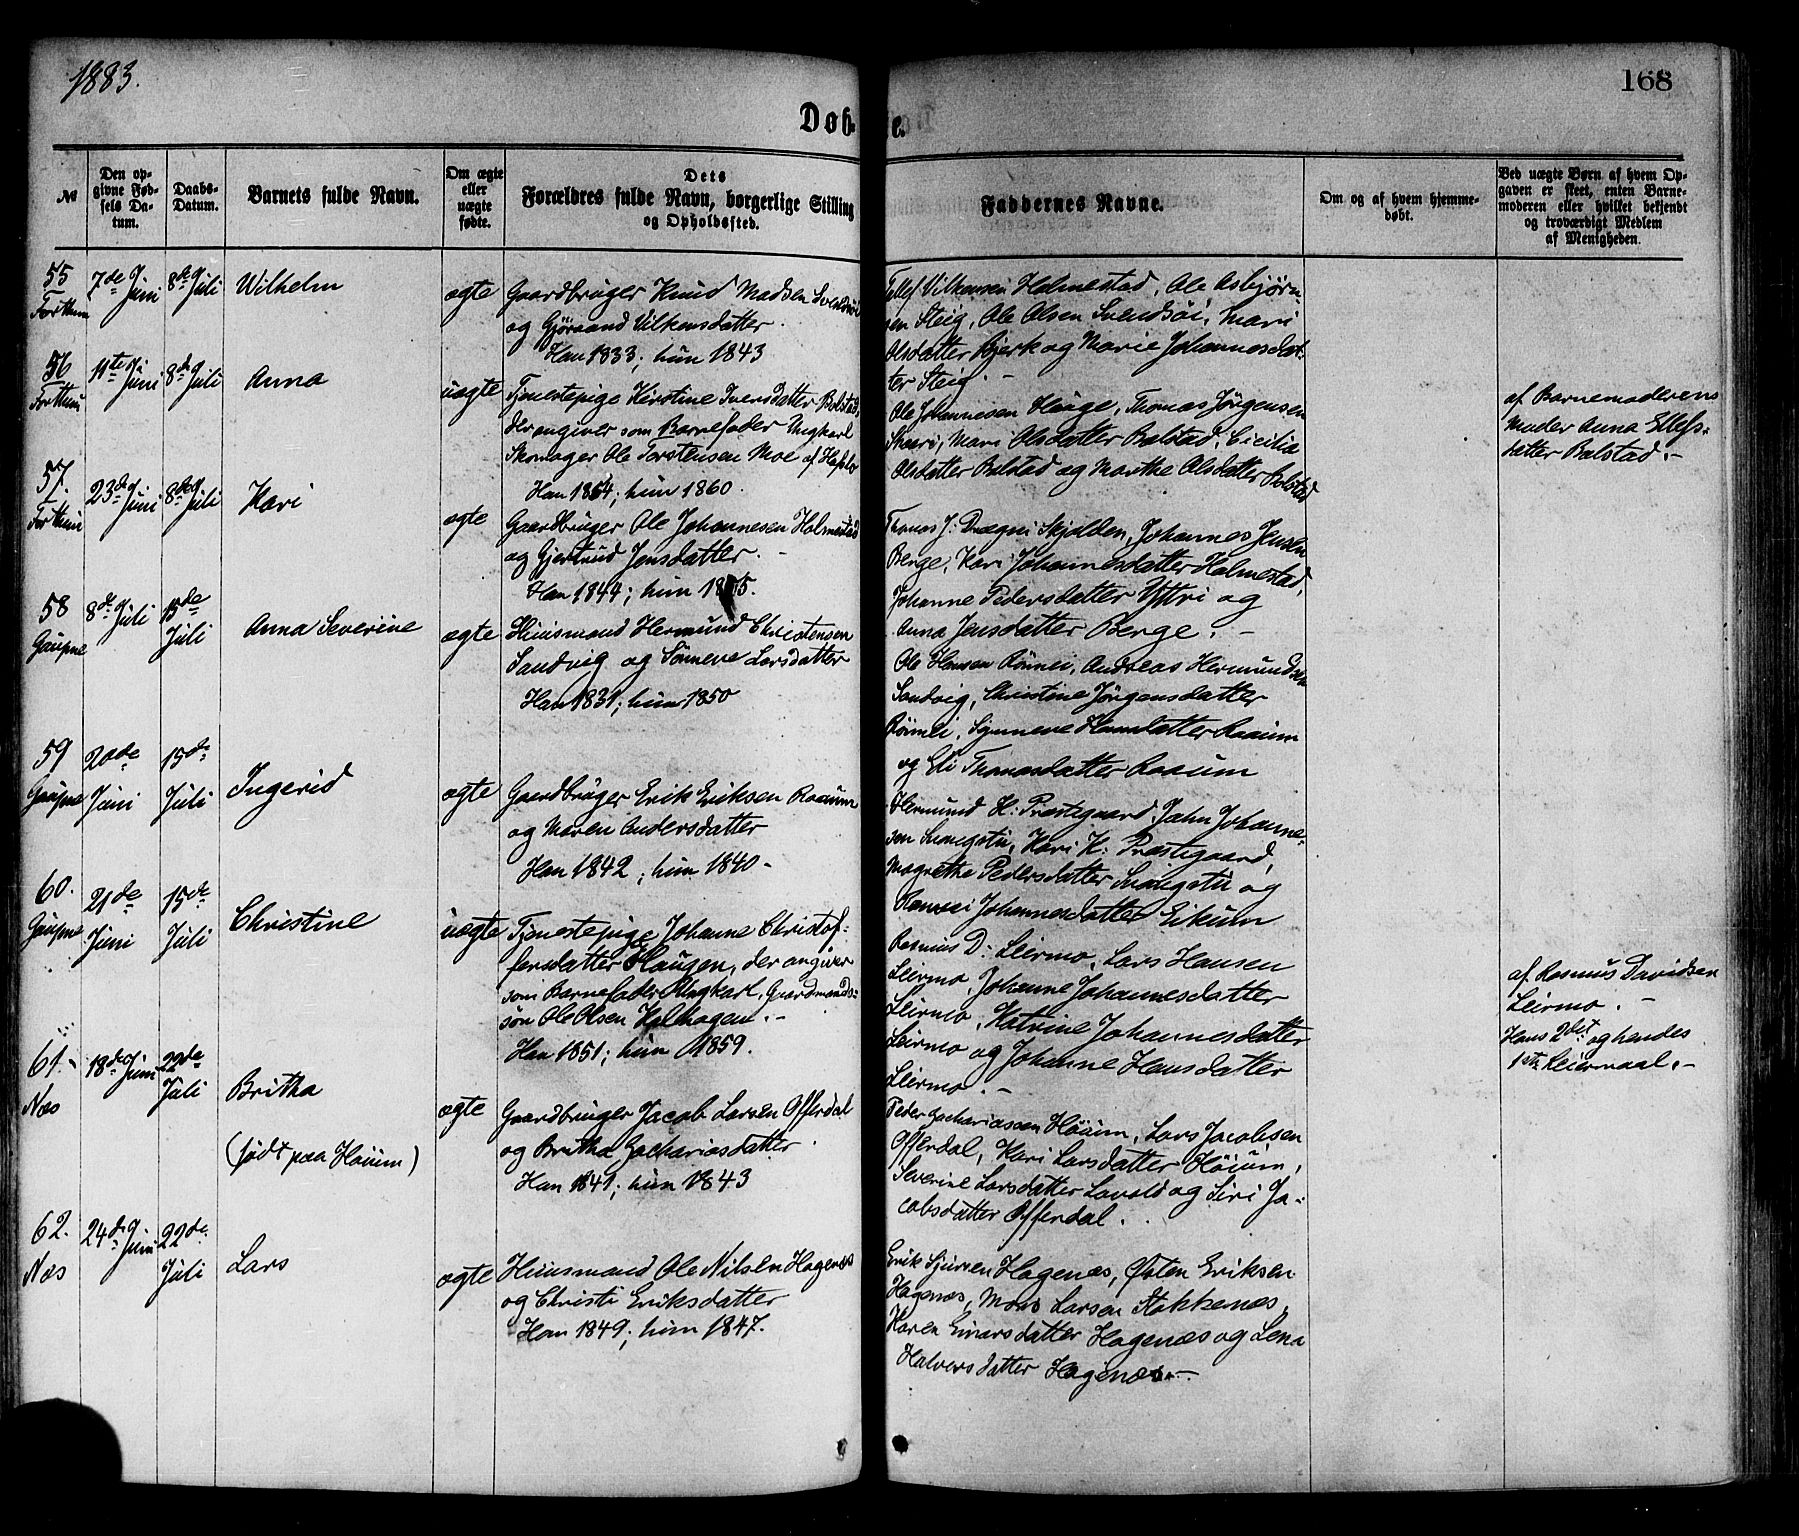 1883.
168
Døb-
te.
№
Den op-
givne Fød-
sels Da-
tum.
Daabs-
Datum.
Barnets fulde Navn.
Om ægte
eller
uægte
fødte.
Dets
Forældres fulde Navn, borgerlige Stilling
og Opholdssted.
Faddernes Navne.
Om og af hvem hjemme-
døbt.
Ved uægte Børn af hvem Op-
gaven er skeet, enten Barne-
moderen eller hvilket bekjendt
og troværdigt Medlem
af Menigheden.
55
Forthun
7de Juni
8de Juli
Wilhelm
ægte
Gaardbruger Knud Madsen
og Gjørond Vilkensdatter.
Han 1833; hun 1843
Vilkensen Holmestad, Ole Asbjørn-
sen Steig, Ole Olsen Svendsøi, Mari
Olsdatter Bjerk og Marie Johannesdat-
ter Steig. -
56
Forthun
11te Juni
8de Juli
Anna
uægte
Tjenestepige Kirstine Iversdatter Bolstad,
der angiver som Barnefader Ungkarl
Skomager Ole Torstensen Moe af Hafslo
Han 1854; hun 1860.
Ole Johannesen Hauge, Thomas Jørgensen
Skaari, Mari Olsdatter Bolstad, Cicilia
Olsdatter Bolstad og Marthe Olsdatter Bolstad
af Barnemoderens
Moder Anna Ellefs-
datter Bolstad. -
57.
Forthun
23de Juni
8de Juli
Kari
ægte
Gaardbruger Ole Johannesen Holmestad
og Gjertrud Jensdatter. -
Han 1844; hun
Thomas J: Drægni Skjolden, Johannes Jensen
Berge, Kari Johannesdatter Holmestad,
Johanne Pedersdatter Yttri og
Anna Jensdatter Berge. -
58
Gaupne
8de Juli
15de
Juli
Anna Severine
ægte
Huusmand Hermund Christensen
Sandvig og Sønneve Larsdatter
Han 1831; hun 1850
Ole Hansen Rønnei, Andreas Hermundsen
Sandvig, Christine Jørgensdatter
Rønnei, Synneve Hansdatter Raaum
og Eli Thomasdatter Raaum
59
Gaupne
20de
Juni
15de
Juli
Ingerid
ægte
Gaardbruger Erik Eriksen Raaum
og Maren Andersdatter
Han 1842; hun 1840 -
Hermund H: Præstegaard, John Johanne-
sen Snangstu, Kari H: Præstegaard,
Magrethe Pedersdatter Snangstu og
Johannesdatter Eikum
60.
Gaupne
21de
Juni
15de
Juli
Christine
uægte
Tjenestepige Johanne Christof-
fersdatter Haugen, der angiver
som Barnefader Ungkarl, Gaardmands-
søn Ole Olsen Kalhagen. -
Han 1851; hun 1859.
Rasmus D: Leirmo, Lars Hansen
Leirmo, Johanne Johannesdatter
Leirmo, Katrine Johannesdatter
Leirmo og Johanne Hansdatter
Leirmo. -
af Rasmus Davidsen
Leirmo. -
Hans 2det og hendes
1ste Leiermaal. -
61. -
Næs
18de Juni
22de
Juli
Britha
(født paa Høium)
ægte
Gaardbruger Jacob Larsen Offerdal
og Britha Zachariasdatter.
Han 1841; hun 1843
Peder Zachariassen Høium, Lars Jacobsen
Offerdal, Kari Larsdatter Høium,
Severine Larsdatter Lavold og Siri Ja-
cobsdatter Offerdal.
62.
Næs
24de Juni
22de
Juli
Lars
ægte
Huusmand Ole Nilsen Hagenæs
og Christi Eriksdatter
Han 1849; hun 1847.
Erik Sjursen Hagenæs, Østen Eriksen
Hagenæs, Mons Larsen Stokkenæs,
Karen Einarsdatter Hagenæs og Lena
Halvorsdatter Hagenæs. -